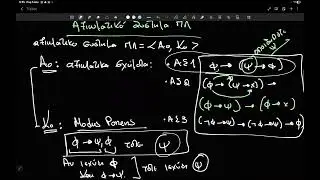 Αξιωματικό σύστημα ΠΛ
αξιωματικό σύστημα ΠΛ = < A₀ , K₀ >
A₀ : αξιωματικά σχήματα : ΑΣ1 φ → (ψ → φ)
ΑΣ2 (φ → (ψ → χ)) →
(φ → ψ) → (φ → χ)
K₀ : Modus Ponens ΑΣ3 (¬φ → ψ) → (¬φ → ¬ψ) → φ
φ → ψ, φ τότε ψ
Αν ισχύει φ
και φ → ψ, τότε ισχύει ψ